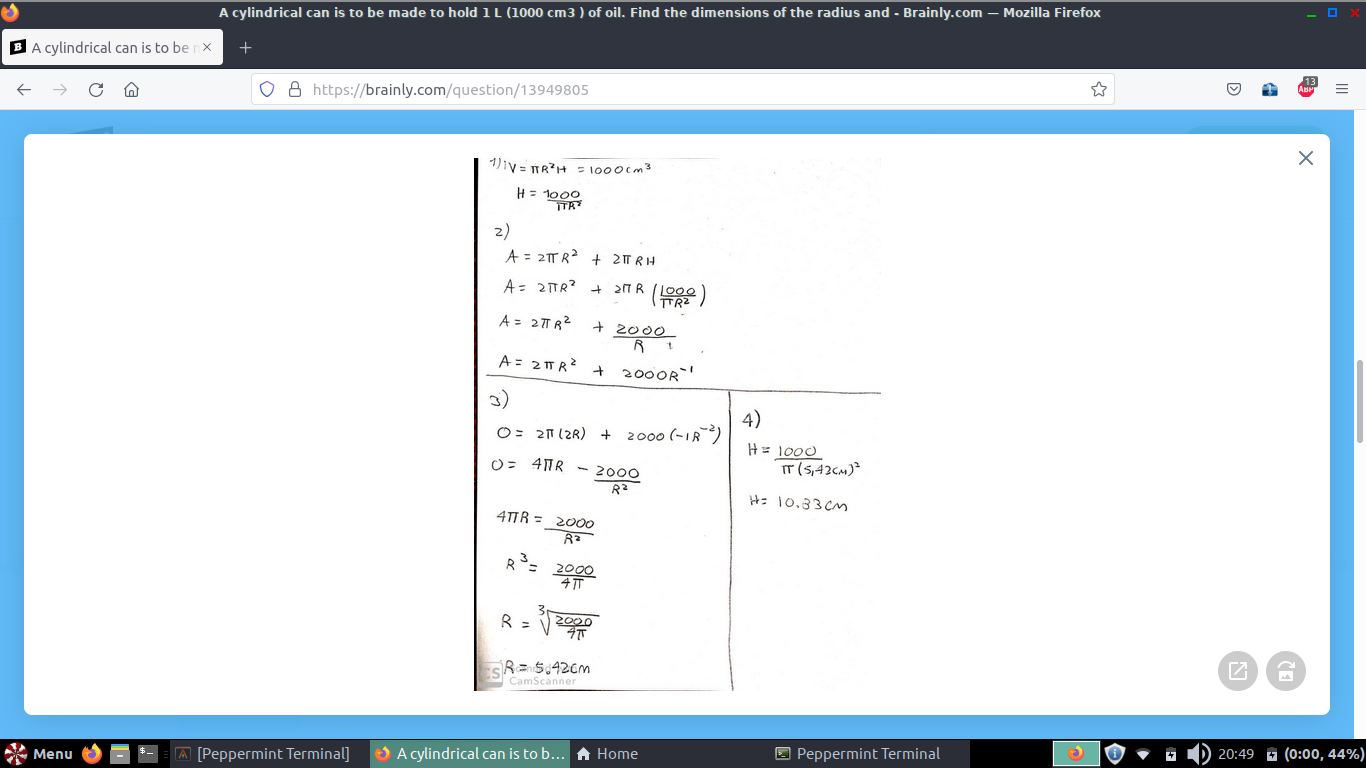 A cylindrical can is to be made to hold 1 L (1000 cm3 ) of oil. Find the dimensions of the radius and - Brainly.com — Mozilla Firefox
A cylindrical can is to be m
https://brainly.com/question/13949805
13
ABP
1) V = πR²H = 1000cm³
H = 1000/πR²
2)
A = 2πR² + 2πRH
A = 2πR² + 2πR (1000/πR²)
A = 2πR² + 2000/R
A = 2πR² + 2000R⁻¹
3)
0 = 2π(2R) + 2000(-1R⁻²)
0 = 4πR - 2000/R²
4πR = 2000/R²
R³ = 2000/4π
R = ³√2000/4π
R = 5.42cm
CS
CamScanner
4)
H = 1000/π(5,42cm)²
H = 10.83cm
Menu
[Peppermint Terminal]
A cylindrical can is to b...
Home
Peppermint Terminal
20:49
(0:00, 44%)